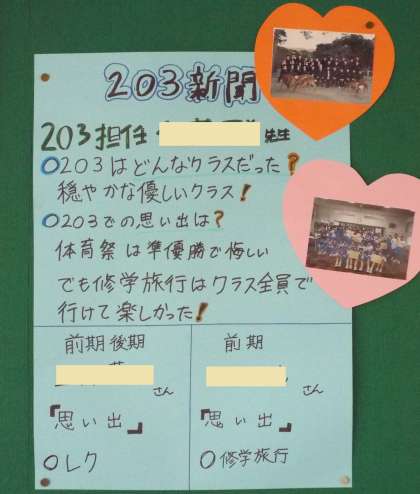 203新聞
203担任 先生
○203はどんなクラスだった?
穏やかな優しいクラス!
○203での思い出は?
体育祭は準優勝で悔しい
でも修学旅行はクラス全員で
行けて楽しかった!
前期後期
さん
『思い出』
○レク
前期
さん
『思い出』
○修学旅行